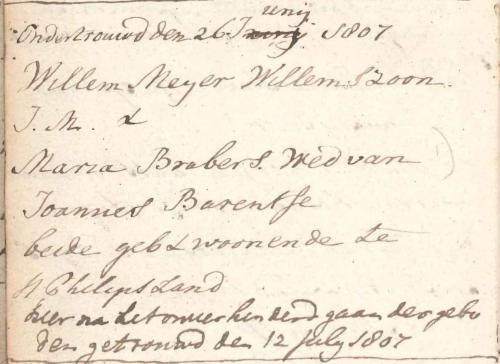 Ondertrouwd den 26 Junij 1807
Willem Meyer Willems Zoon.
J. M. &
Maria Brabers. Wed van
Joannes Barentse
beide geb & woonende te
St Philips Land
hier na het onverhinderd gaan der gebo
den getrouwd den 12 July 1807